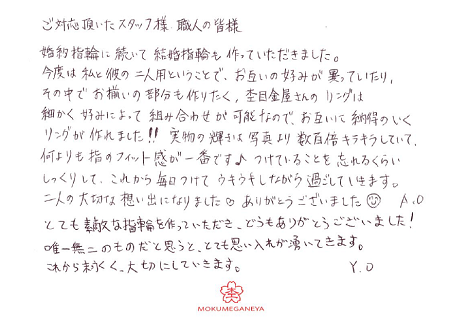 ご対応頂いたスタッフ様 職人の皆様
婚約指輪に続いて結婚指輪も作っていただきました。
今度は私と彼の二人用ということで、お互いの好みが異っていたり、
その中でお揃いの部分も作りたく、杢目金屋さんのリングは
細かく好みによって組み合わせが可能なので、お互いに納得のいく
リングが作れました!! 実物の輝きは写真より数百倍キラキラしていて、
何よりも指のフィット感が一番です♪ つけていることを忘れるくらい
しっくりして、これから毎日つけてウキウキしながら過ごしていきます。
二人の大切な想い出になりました♡ ありがとうございました☺ A.O
とても素敵な指輪を作っていただき、どうもありがとうございました!
唯一無二のものだと思うと、とても思い入れが湧いてきます。
これから末永く、大切にしていきます。 Y.O
MOKUMEGANEYA